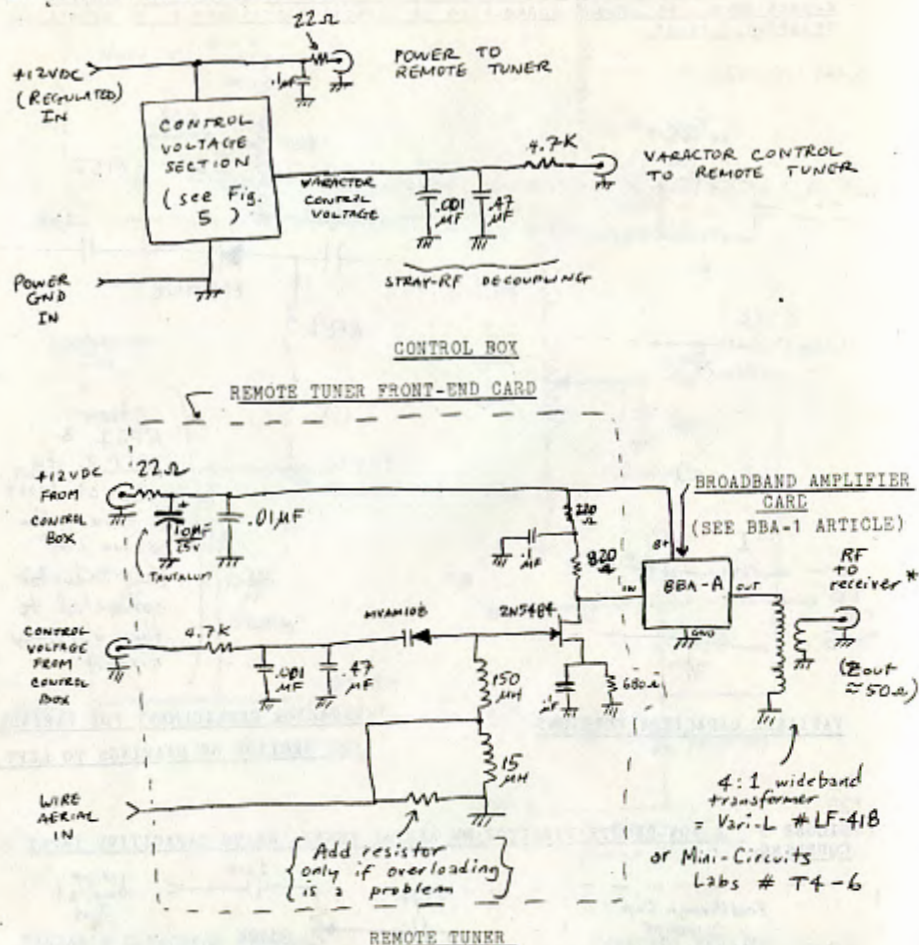 22Ω
+12VDC
(REGULATED)
IN
.1µF
POWER TO
REMOTE TUNER
CONTROL
VOLTAGE
SECTION
(see Fig.
5)
VARACTOR
CONTROL
VOLTAGE
.001
µF
.47
µF
4.7K
VARACTOR CONTROL
TO REMOTE TUNER
STRAY-RF DECOUPLING
POWER
GND
IN
CONTROL BOX
REMOTE TUNER FRONT-END CARD
+12VDC
FROM
CONTROL
BOX
22Ω
+
10µF
TANTALUM
.01µF
220
Ω
.1µF
820
Ω
B+
BROADBAND AMPLIFIER
CARD
(SEE BBA-1 ARTICLE)
IN
BBA-A
OUT
GND
RF
to
receiver*
(Zout
≈50Ω)
CONTROL
VOLTAGE
FROM
CONTROL
BOX
4.7K
.001
µF
.47
µF
MVAM108
2N5484
680Ω
150
µH
15
µH
WIRE
AERIAL
IN
Add resistor
only if overloading
is a problem
4:1 wideband
transformer
= Vari-L #LF-418
or Mini-Circuits
Labs # T4-6
REMOTE TUNER